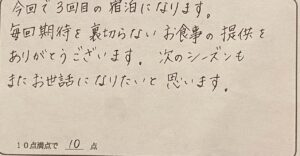 今回で3回目の宿泊になります。
毎回期待を裏切らないお食事の提供を
ありがとうございます。次のシーズンも
またお世話になりたいと思います。
10点満点で 10 点